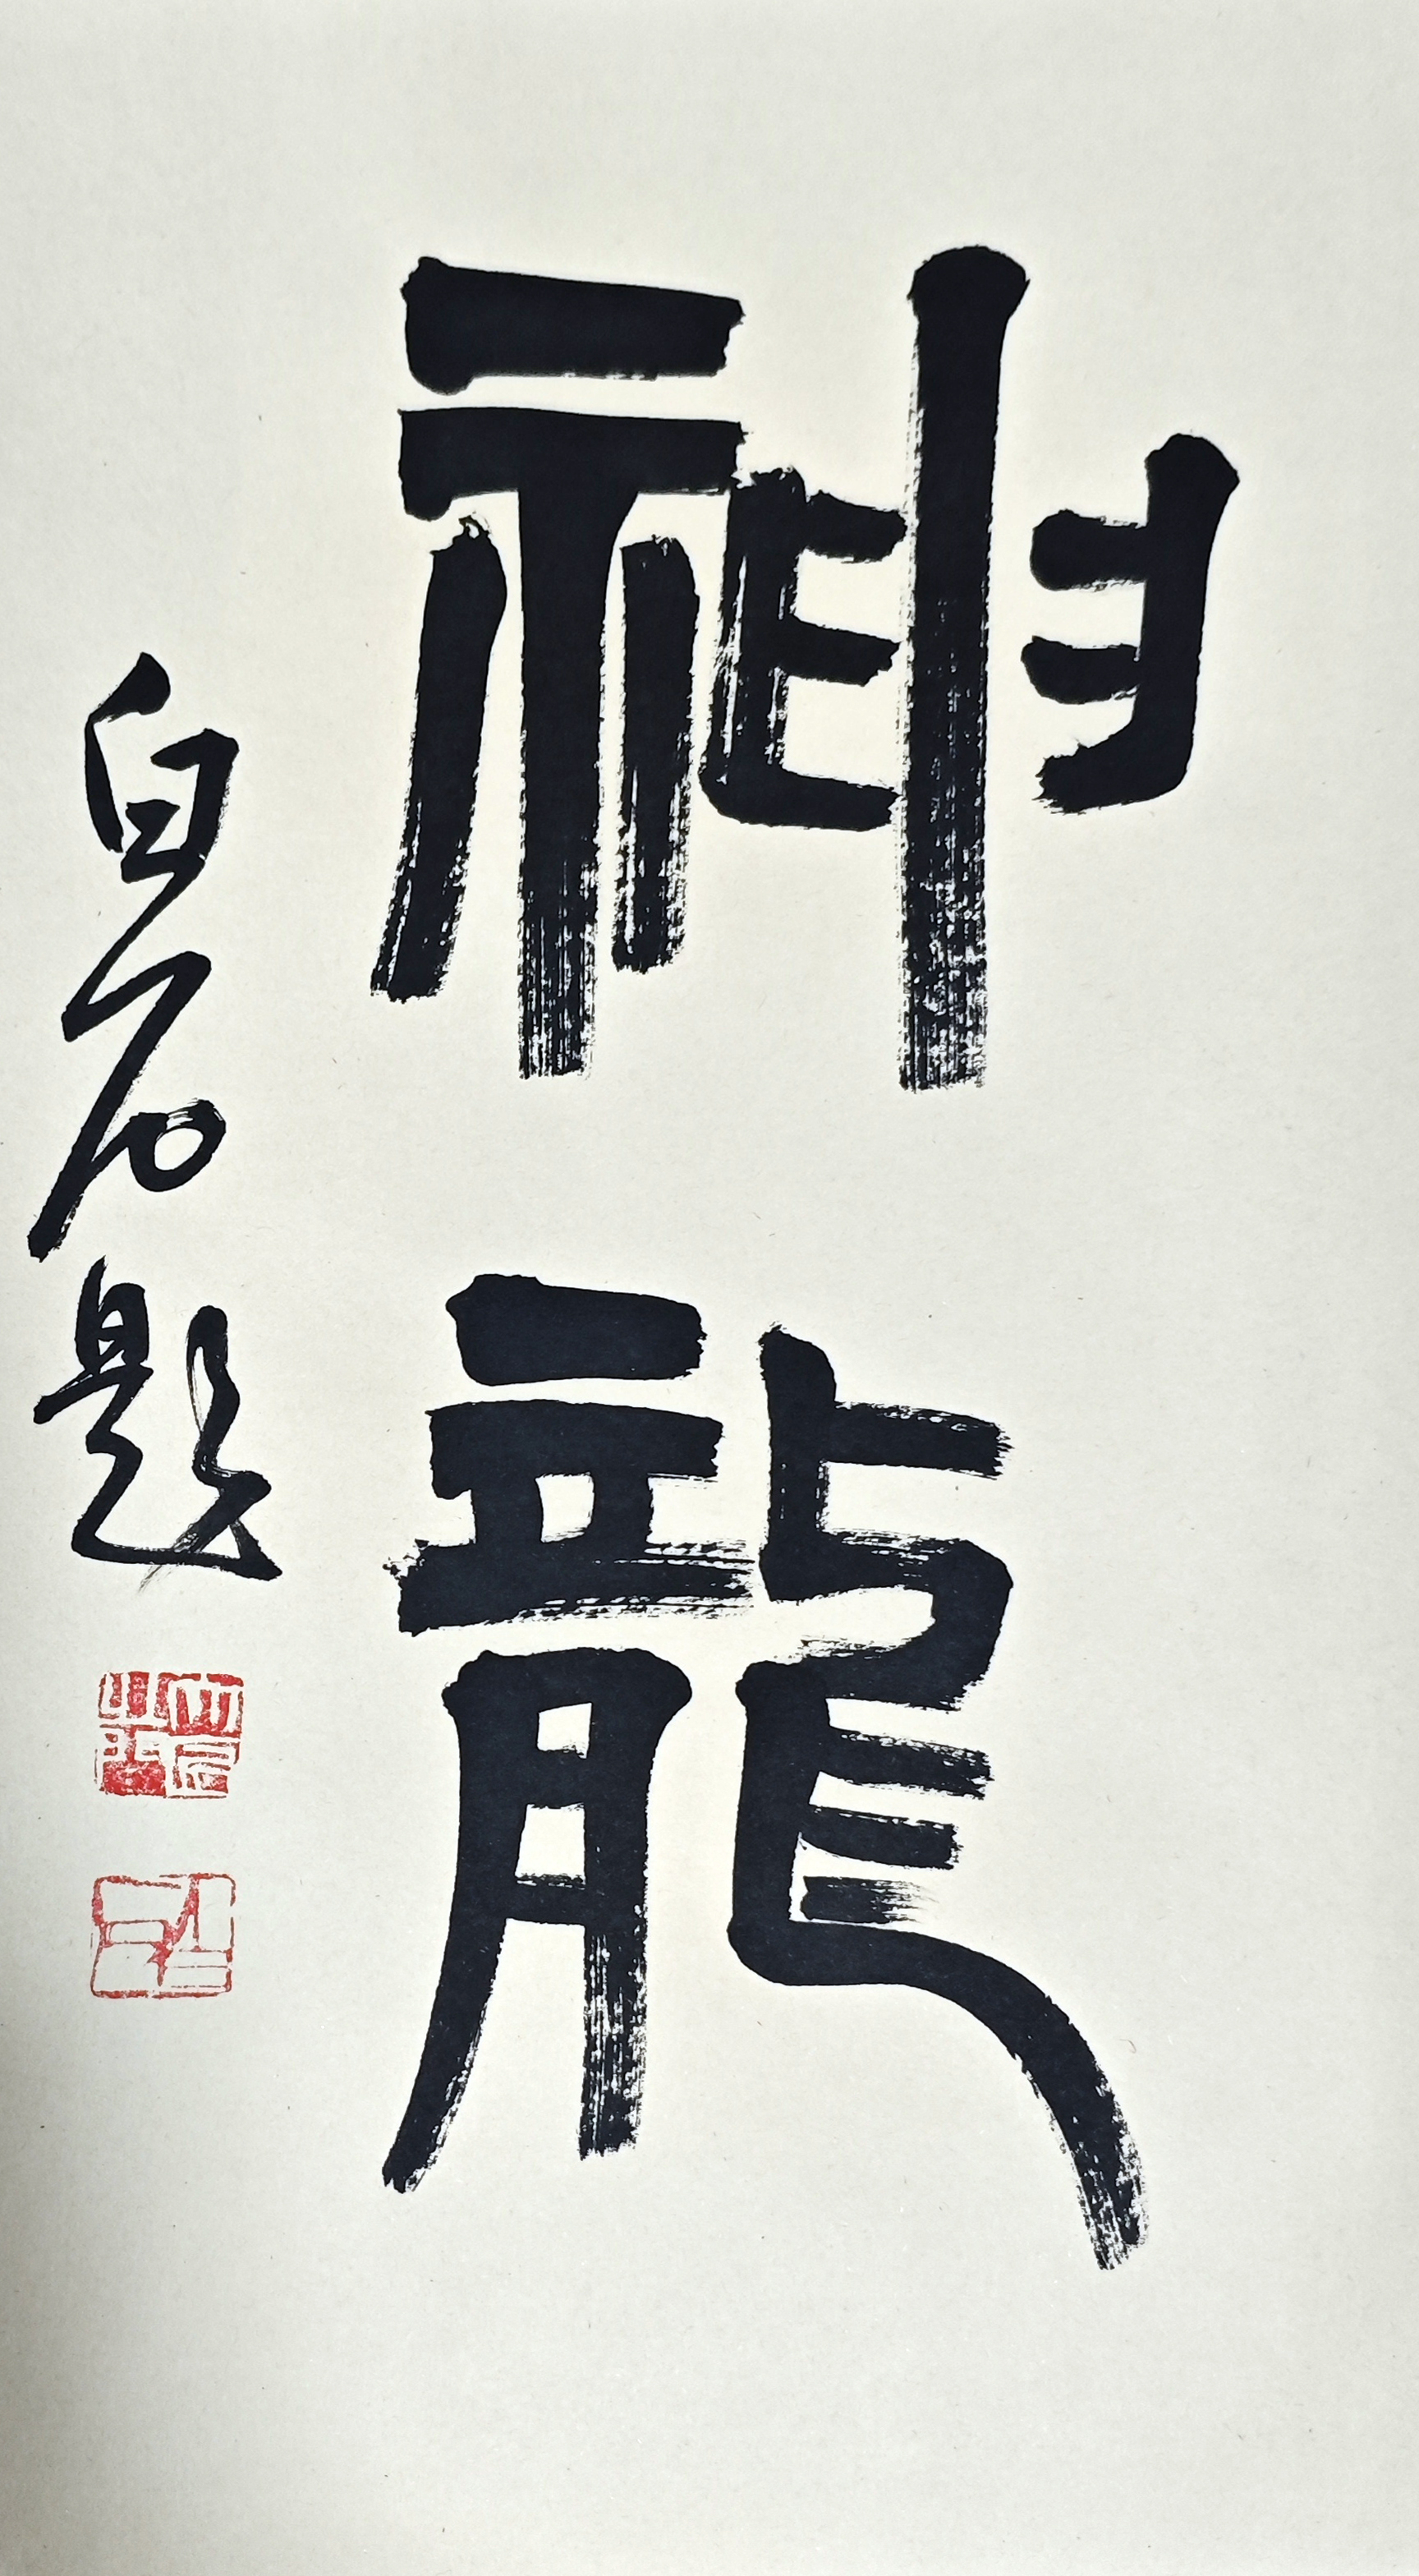 神龍
白石題